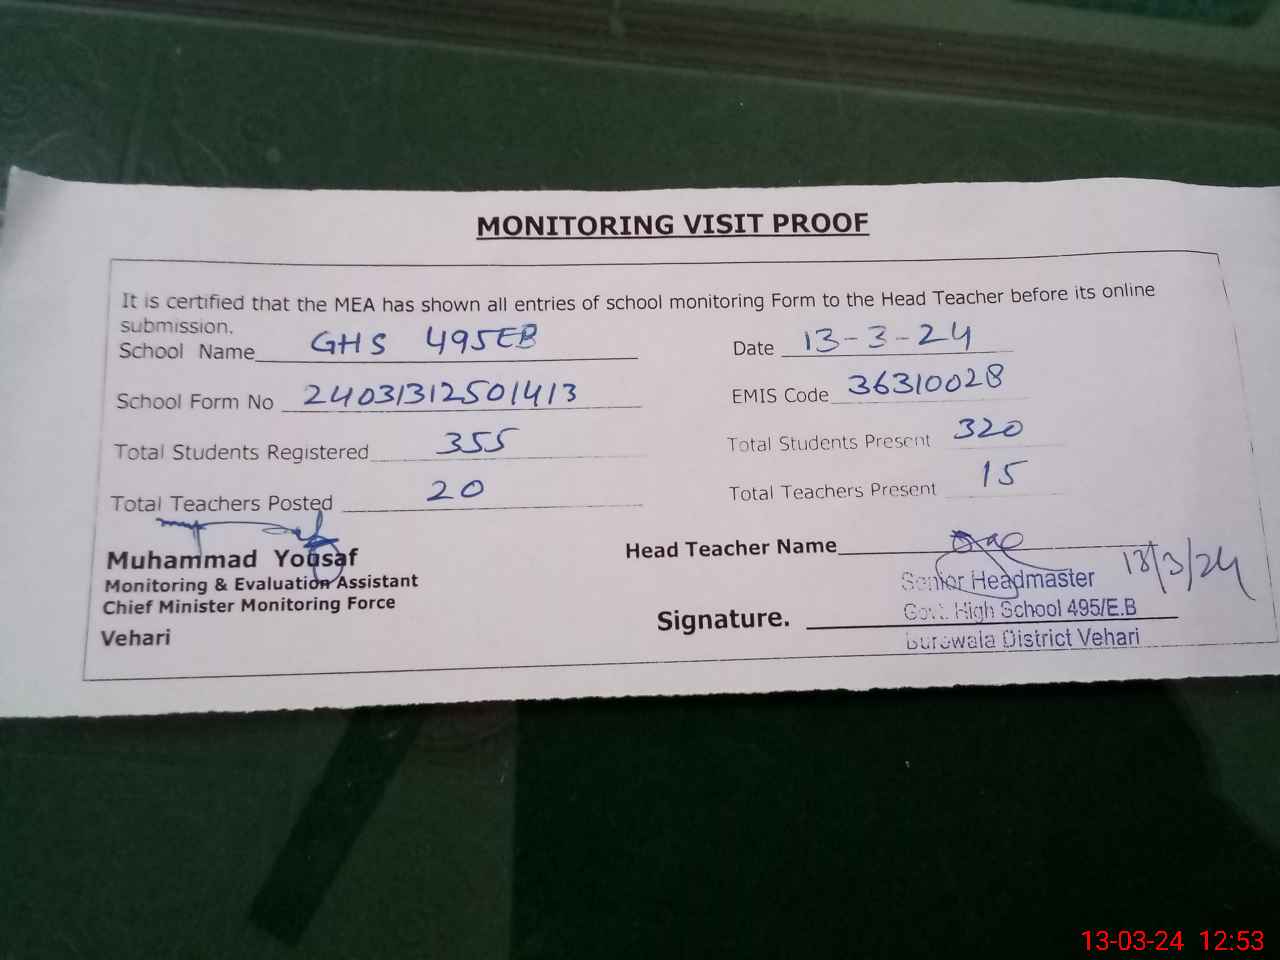 MONITORING VISIT PROOF
It is certified that the MEA has shown all entries of school monitoring Form to the Head Teacher before its online
submission.
School Name GHS 495EB Date 13-3-24
School Form No 24031312501413 EMIS Code 36310028
Total Students Registered 355 Total Students Present 320
Total Teachers Posted 20 Total Teachers Present 15
Muhammad Yousaf Head Teacher Name
Monitoring & Evaluation Assistant Senior Headmaster 13/3/24
Chief Minister Monitoring Force Signature. Govt. High School 495/E.B
Vehari Burewala District Vehari
13-03-24 12:53